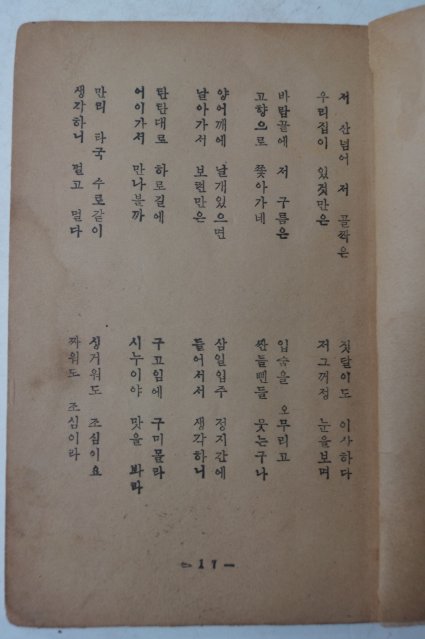 저 산넘어 저 골짝은
우리집이 있것만은
바람끝에 저 구름은
고향으로 쫓아가네
양어깨에 날개있으면
날아가서 보련만은
탄탄대로 하로길에
어이가서 만나볼까
만리 타국 수로같이
생각하니 멀고 멀다
첫달이도 이사하다
저그꺼정 눈을보며
입술을 오무리고
싼들뺀들 웃는구나
삼일입주 정지간에
들어서서 생각하니
구고임에 구미몰라
시누이야 맛을 봐라
싱거워도 조심이요
짜워도 조심이라
— 17 —